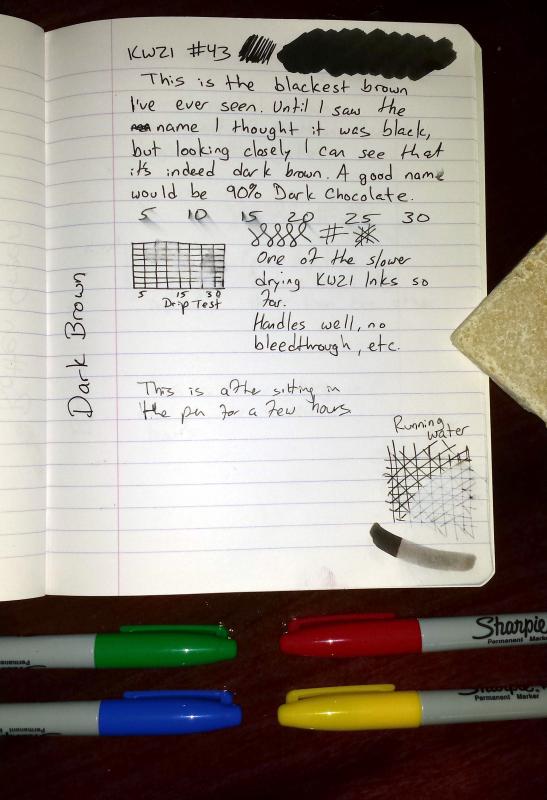 KWZI #43
This is the blackest brown
I've ever seen. Until I saw the
name I thought it was black,
but looking closely I can see that
it's indeed dark brown. A good name
would be 90% Dark Chocolate.
5 10 15 20 25 30
#
One of the slower
drying KWZI Inks so
far.
Handles well, no
bleedthrough, etc.
5 15 30
Drip Test
Dark Brown
This is after sitting in
the pen for a few hours
Running
water
Sharpie
Permanent Marker
Sharpie
Permanent Marker
Permanent
Permanent